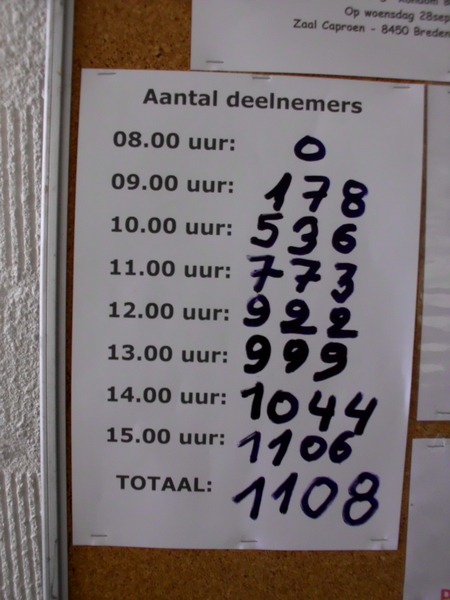 Op woensdag 28sep
Zaal Caproen - 8450 Breden
Aantal deelnemers
08.00 uur: 0
09.00 uur: 178
10.00 uur: 536
11.00 uur: 773
12.00 uur: 922
13.00 uur: 999
14.00 uur: 1044
15.00 uur: 1106
TOTAAL: 1108